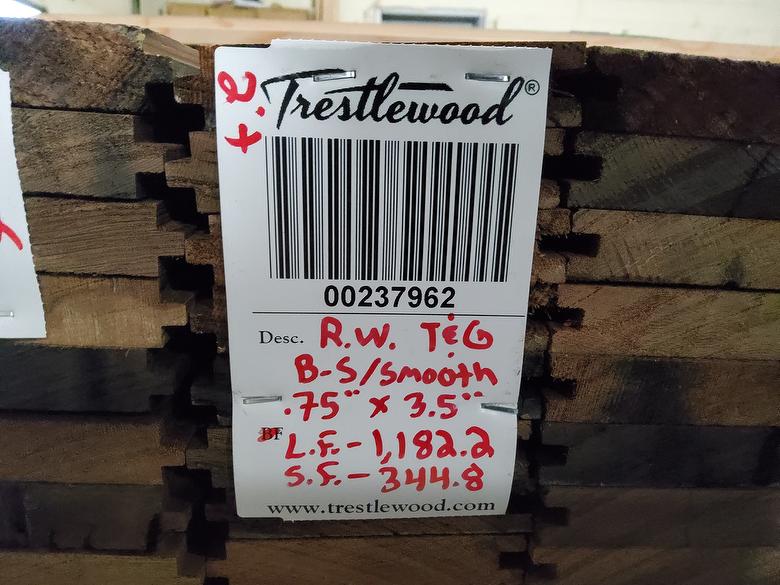 t.e
Trestlewood®
00237962
Desc. R.W. T&G
B-S/Smooth
.75" x 3.5"
BF L.F.-1,182.2
S.F.-344.8
www.trestlewood.com